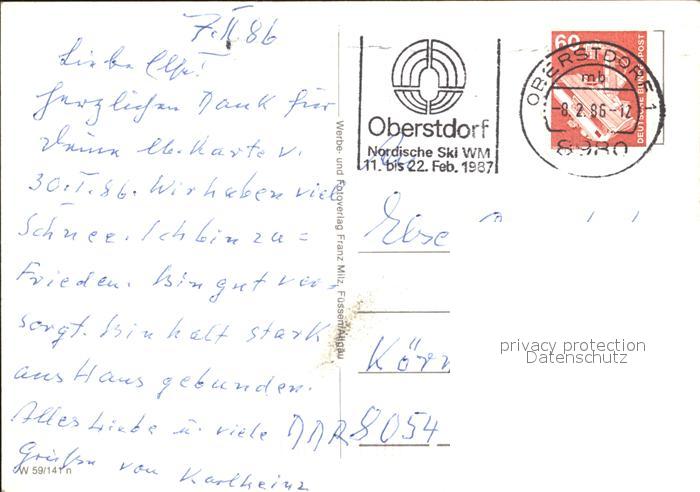 7.II.86
Liebe Else!
Herzlichen Dank für
Deine lb. Karte v.
30.I.86. Wir haben viel
Schnee. Ich bin zu=
frieden. Bin gut ver=
sorgt. Bin halt stark
ans Haus gebunden.
Alles Liebe u. viele
Grüße von Karlheinz
W 59/141 n
Werbe- und Fotoverlag Franz Milz, Füssen/Allgäu
Oberstdorf
Nordische Ski WM
11. bis 22. Feb. 1987
60
DEUTSCHE BUNDESPOST
OBERSTDORF 1
mb
8.2.86-12
8980
Else
Körn
DDR 8054
privacy protection
Datenschutz